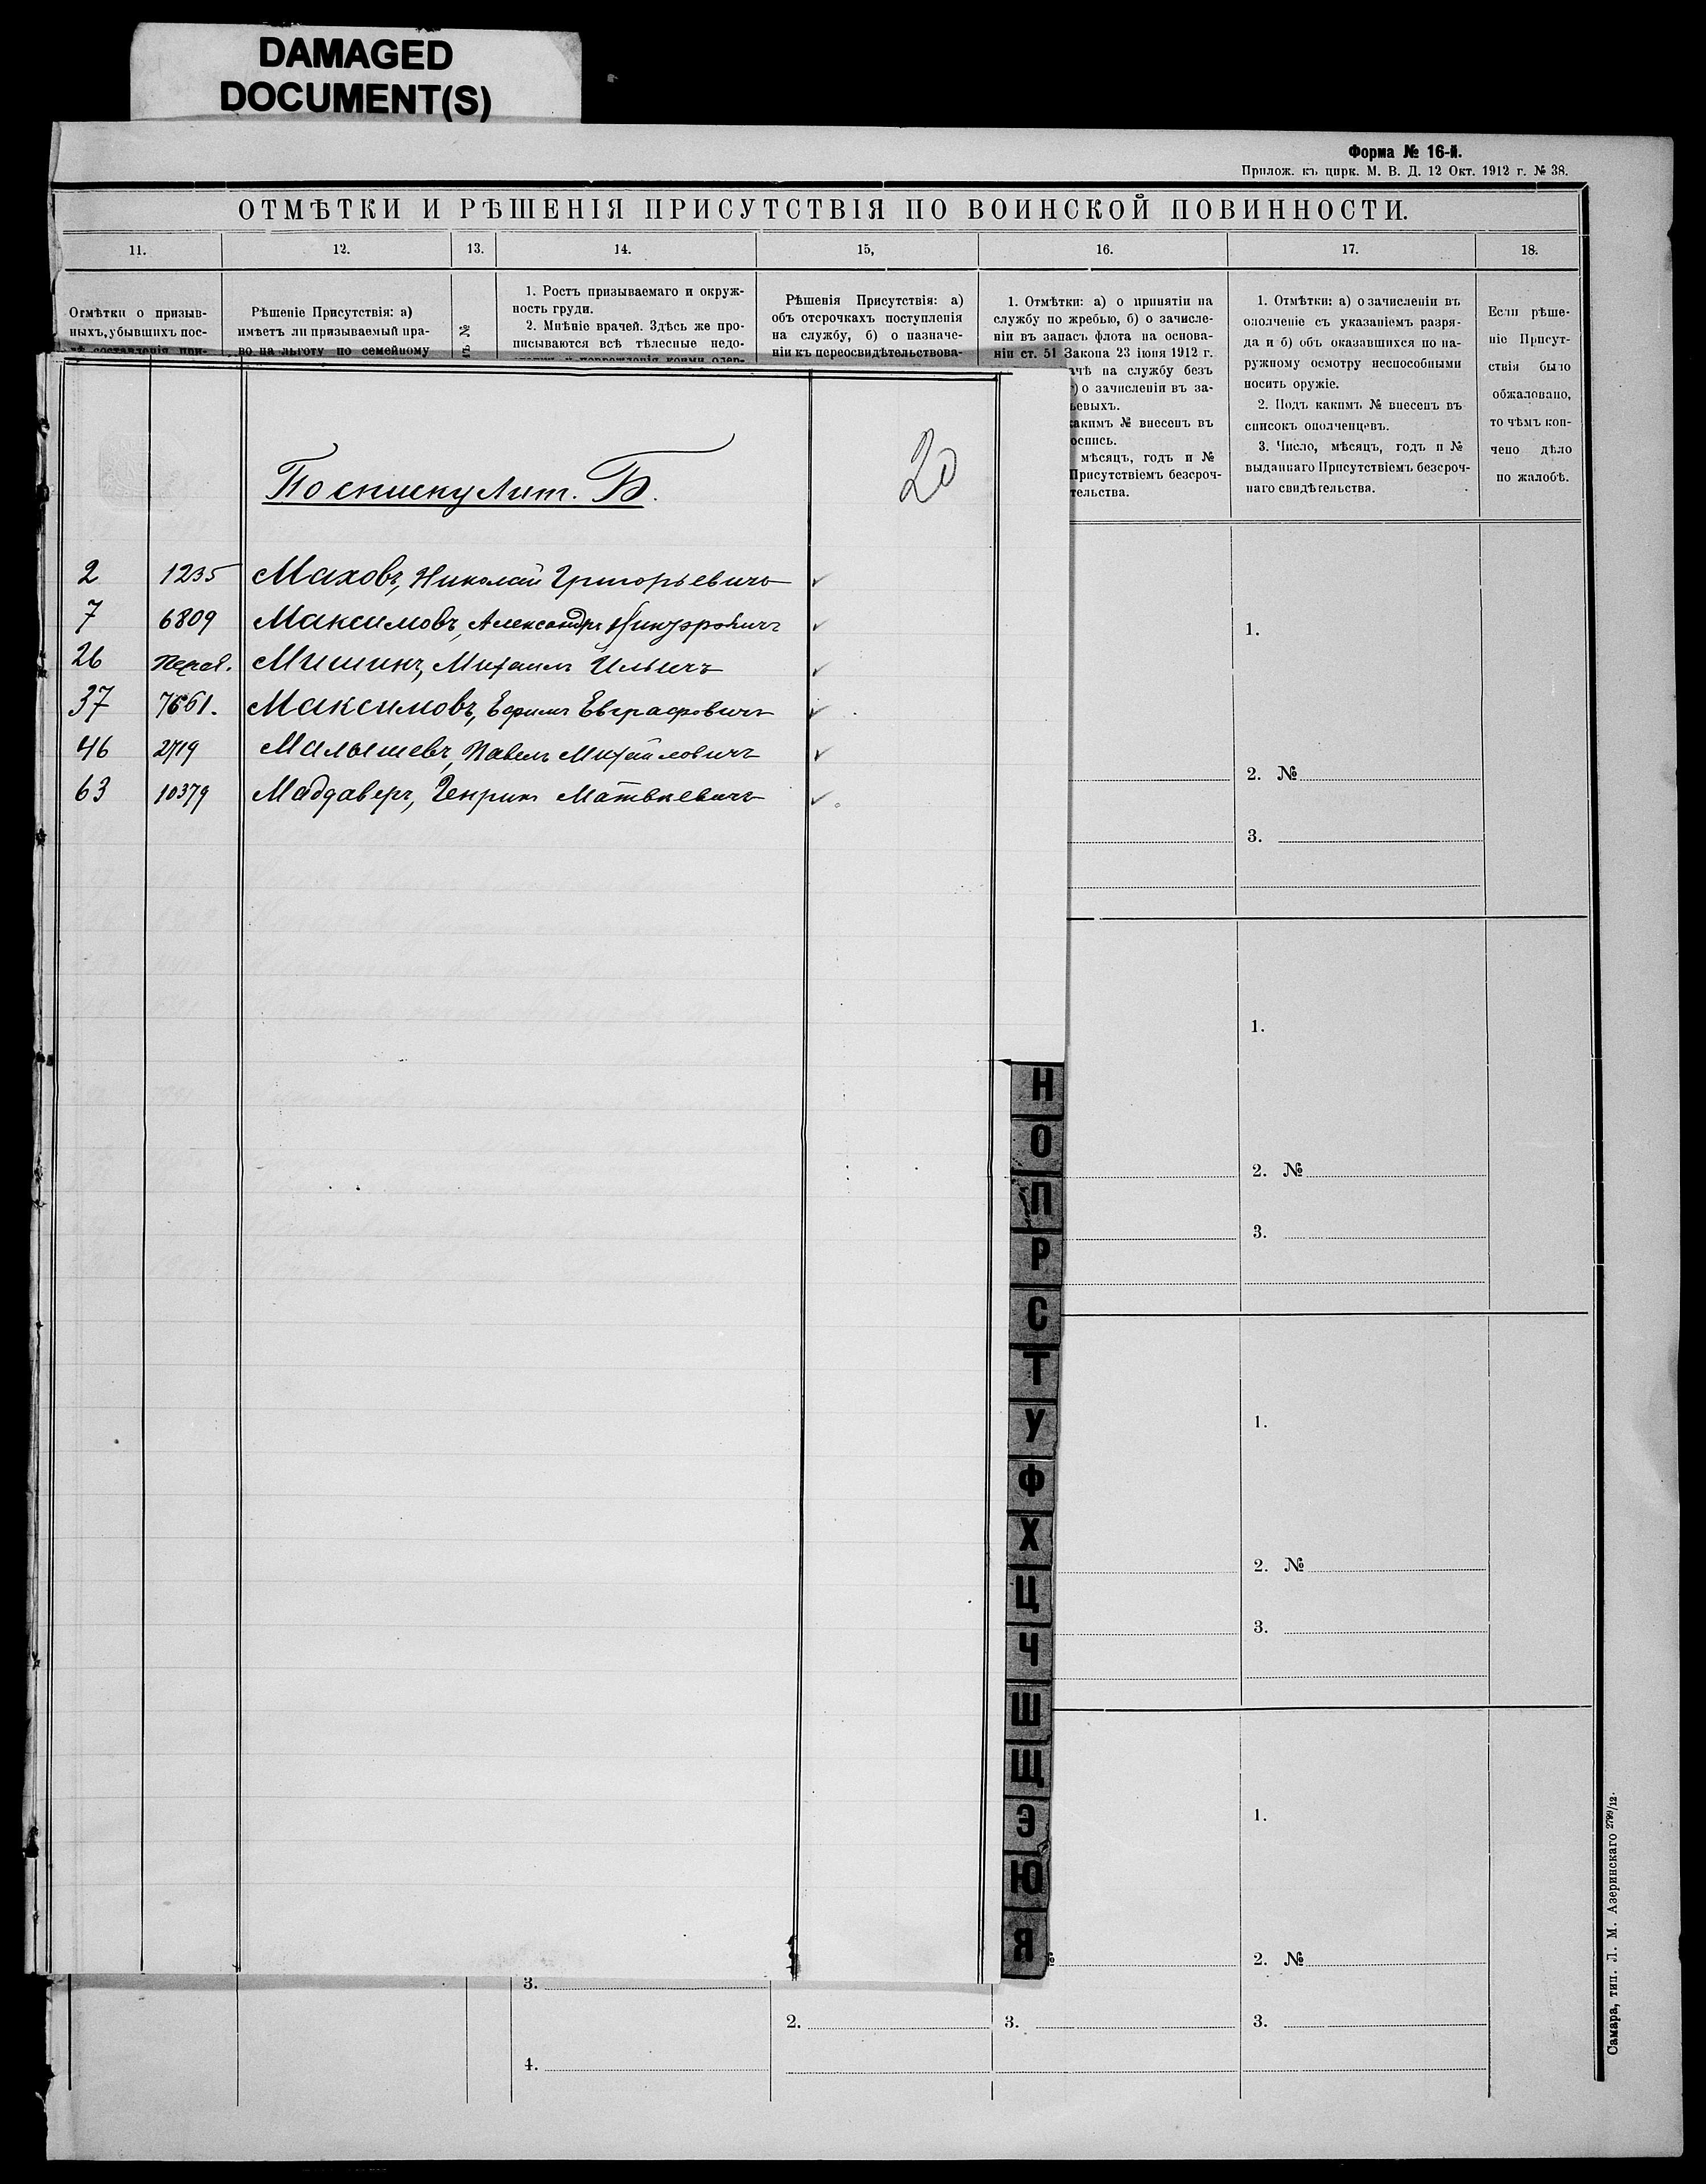 DAMAGED
DOCUMENT(S)
Форма № 16-й.
Прилож. къ цирк. М. В. Д. 12 Окт. 1912 г. № 38.
ОТМѢТКИ И РѢШЕНІЯ ПРИСУТСТВІЯ ПО ВОИНСКОЙ ПОВИННОСТИ.
11. 12. 13. 14. 15, 16. 17. 18.
Отмѣтки о призыв-
ныхъ, убывшихъ пос-
лѣ составленія при-
Рѣшеніе Присутствія: а)
имѣетъ ли призываемый пра-
во на льготу по семейному
№
1. Ростъ призываемаго и окруж-
ность груди.
2. Мнѣніе врачей. Здѣсь же про-
писываются всѣ тѣлесные недо-
Рѣшенія Присутствія: а)
объ отсрочкахъ поступленія
на службу, б) о назначе-
ніи къ переосвидѣтельствова-
1. Отмѣтки: а) о принятіи на
службу по жребью, б) о зачисле-
ніи въ запасъ флота на основа-
ніи ст. 51 Закона 23 іюня 1912 г.
ачѣ на службу безъ
) о зачисленіи въ за-
ьевыхъ.
какимъ № внесенъ въ
оспись.
мѣсяцъ, годъ и №
Присутствіемъ безсроч-
тельства.
1. Отмѣтки: а) о зачисленіи въ
ополченіе съ указаніемъ разря-
да и б) объ оказавшихся по на-
ружному осмотру неспособными
носить оружіе.
2. Подъ какимъ № внесенъ въ
списокъ ополченцевъ.
3. Число, мѣсяцъ, годъ и №
выданнаго Присутствіемъ безсроч-
наго свидѣтельства.
Если рѣше-
ніе Присут-
ствія было
обжаловано,
то чѣмъ кон-
чено дѣло
по жалобѣ.
По списку Лит. Б.
20
2 1235 Маховъ, Николай Григорьевичъ
7 6809 Максимовъ, Александръ
26 Мишинъ, Михаилъ Ильичъ
37 7661. Максимовъ, Ефимъ Евграфовичъ
46 2719 Малышевъ, Павелъ Михайловичъ
63 10379 Генрихъ Матвѣевичъ
Н
О
П
Р
С
Т
У
Ф
Х
Ц
Ч
Ш
Щ
Э
Ю
Я
1.
2. №
3.
1.
2. №
3.
1.
2. №
3.
1.
2. №
3.
3.
4.
2.
3.
Самара, тип. Л. М. Азеринскаго 2799/12.